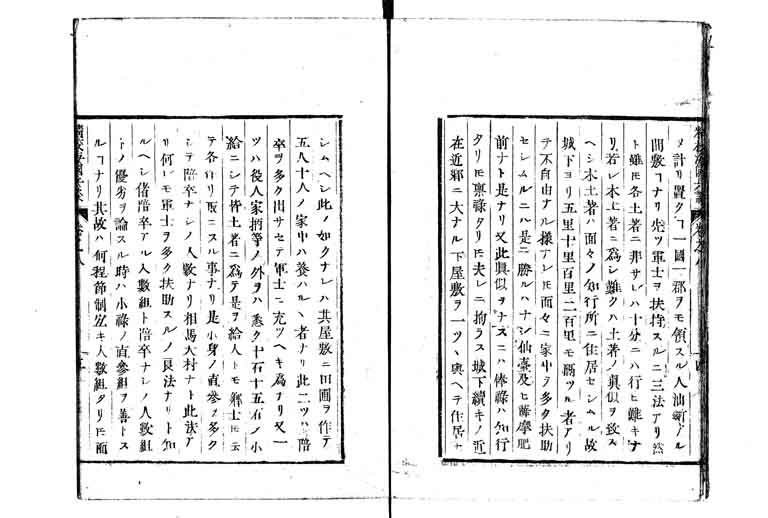 メ計リ置クヿ一國一郡ヲモ領スル人
間數ヿナリ先ツ軍士ヲ扶持スルニ三法アリ然
ト雖モ各土著ニ非サレハ十分ニハ行ヒ難キナ
リ若シ本土著ニ爲シ難クハ土著ノ眞似ヲ致ス
ヘシ本土著ハ面々ノ知行所ニ住居セシムル故
城下ヨリ五里十里百里二百里モ隔ツル者アリ
テ不自由ナル樣ナレモ面々ニ家中ヲ多ク扶助
セシムルニハ是ニ勝ルハナシ仙臺及ヒ薩摩肥
前ナト是ナリ又此眞似ヲナスニハ俸祿ハ知行
タリモ禀祿タリモ夫レニ拘ラス城下續キノ近
在近郷ニ大ナル下屋敷ヲ一ツヽ與ヘテ住居
シムヘシ此ノ如クナレハ其屋敷ニ田圃ヲ作テ
五人十人ノ家中ハ養ハルヽ者ナリ此二ツハ陪
卒ヲ多ク出サセテ軍士ニ充ツヘキ爲ナリ又一
ツハ役人家柄等ノ外ヲハ悉ク十石十五石ノ小
給ニシテ皆土著ニ爲テ是ヲ給人トモ郷士モ云
テ各 リ取ニスル事ナリ是小身ノ直參ヲ多ク
シテ陪卒ナシノ人數ナリ相馬大村ナト此法ア
リ何レモ軍士ヲ多ク扶助スルノ良法ナリト知
ルヘシ偖陪卒アル人數組ト陪卒ナシノ人數組
トノ優劣ヲ論スル時ハ小祿ノ直參組ヲ善トス
ルヿナリ其故ハ何程節制宜キ人數組タリモ面